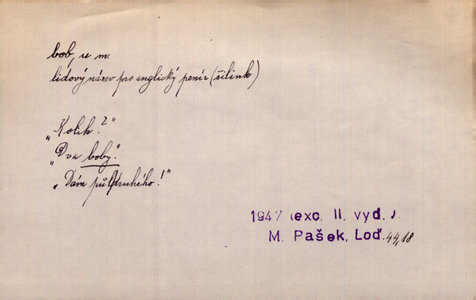 bob, u m.
lidový název pro anglický peníz (šilink)
„Kolik?“
„Dva boby.“
„Dám půldruhého!“
1947 (exc. II. vyd.)
M. Pašek, Loď. 44,18